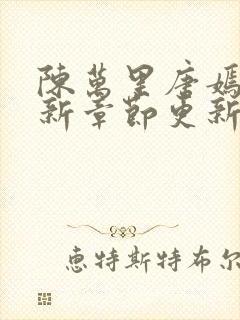 陳萬里唐嫣
新章節更新
恵特斯特布尔